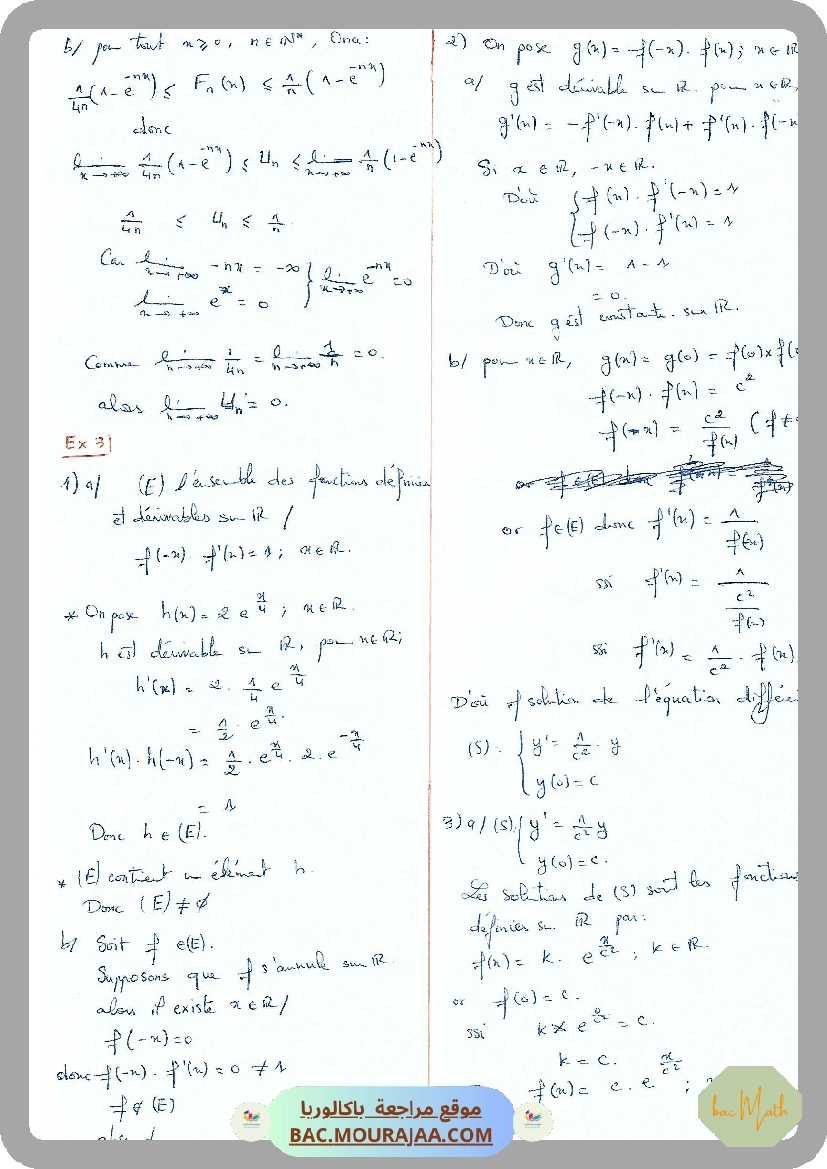 b/ pour tout x ≥ 0, n ∈ ℕ*, Ona:
1/4n (1 - e^-nx) ≤ Fn(x) ≤ 1/n (1 - e^-nx)
donc
lim x→+∞ 1/4n (1 - e^-nx) ≤ Un ≤ lim x→+∞ 1/n (1 - e^-nx)
1/4n ≤ Un ≤ 1/n.
Car lim x→+∞ -nx = -∞ } lim x→+∞ e^-nx = 0
lim e^x = 0
Comme lim n→+∞ 1/4n = lim n→+∞ 1/n = 0.
alors lim n→+∞ Un = 0.
Ex 3|
1) a/ (E) l'ensemble des fonctions définies
et dérivables sur ℝ /
f(-x) · f'(x) = 1 ; x ∈ ℝ.
* On pose h(x) = 2 e^x/4 ; x ∈ ℝ.
h est dérivable sur ℝ, pour x ∈ ℝ;
h'(x) = 2 · 1/4 e^x/4
= 1/2 · e^x/4.
h'(x) · h(-x) = 1/2 · e^x/4 · 2 · e^-x/4
= 1
Donc h ∈ (E).
* (E) contient un élément h.
Donc (E) ≠ ∅
b/ Soit f ∈ (E).
Supposons que f s'annule sur ℝ.
alors il existe x ∈ ℝ /
f(-x) = 0
donc f(-x) · f'(x) = 0 ≠ 1
f ∉ (E)
2) On pose g(x) = f(-x) · f(x) ; x ∈ ℝ
a/ g est dérivable sur ℝ. pour x ∈ ℝ,
g'(x) = -f'(-x) · f(x) + f'(x) · f(-x
Si x ∈ ℝ, -x ∈ ℝ.
D'où { f(x) · f'(-x) = 1
f(-x) · f'(x) = 1
D'où g'(x) = 1 - 1
= 0.
Donc g est constante sur ℝ.
b/ pour x ∈ ℝ, g(x) = g(0) = f(0) × f(
f(-x) · f(x) = c²
f(-x) = c²/f(x) (f ≠
or f ∈ (E) donc f'(x) = 1/f(-x)
ssi f'(x) = 1/(c²/f(x))
ssi f'(x) = 1/c² · f(x)
D'où f solution de l'équation différe
(S) : { y' = 1/c² · y
y(0) = c
3) a/ (S) { y' = 1/c² y
y(0) = c.
Les solutions de (S) sont les fonction
définies sur ℝ par:
f(x) = k · e^x/c² ; k ∈ ℝ.
or f(0) = c.
ssi k × e^0/c² = c.
k = c.
f(x) = c · e^x/c² ;
موقع مراجعة باكالوريا
BAC.MOURAJAA.COM
bac Math